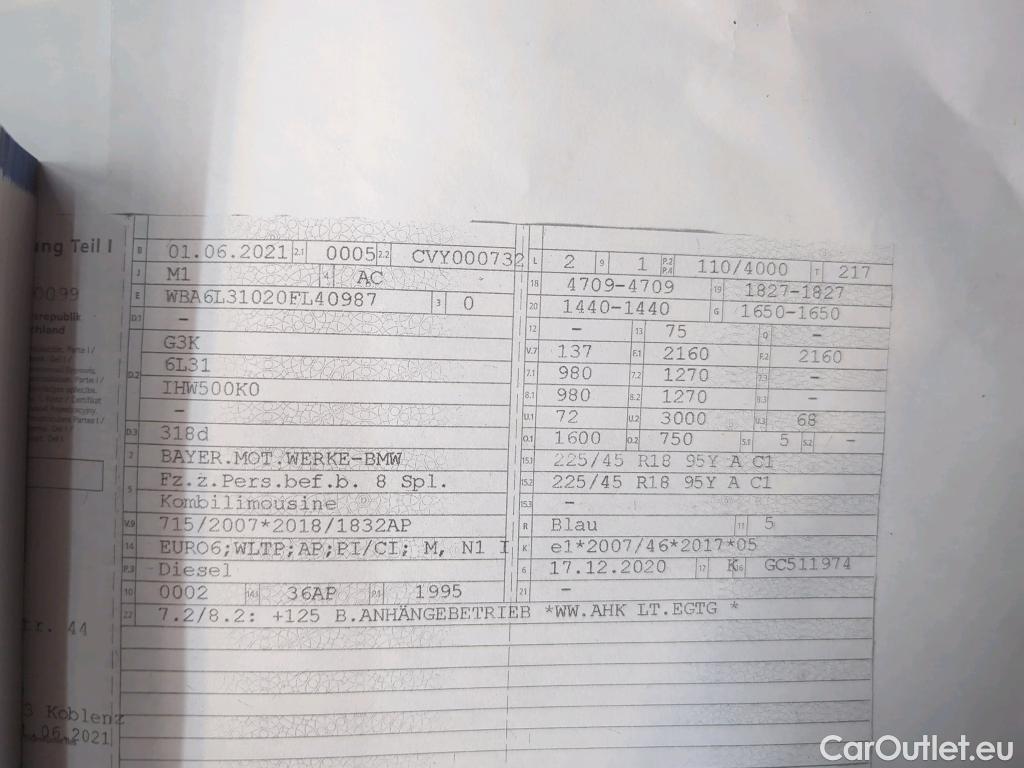 ung Teil I
0099
srepublik
chland
tr. 44
3 Koblenz
.06.2021
B 01.06.2021 2.1 0005 2.2 CVY000732
J M1 4 AC
E WBA6L31020FL40987 3 0
D.1 -
G3K
D.2 6L31
IHW500K0
-
D.3 318d
2 BAYER.MOT.WERKE-BMW
5 Fz.z.Pers.bef.b. 8 Spl.
Kombilimousine
V.9 715/2007*2018/1832AP
14 EURO6;WLTP;AP;PI/CI; M, N1 I
P.3 Diesel
10 0002 14.1 36AP P.1 1995
22 7.2/8.2: +125 B.ANHÄNGEBETRIEB *WW.AHK LT.EGTG *
L 2 9 1 P.2 P.4 110/4000 T 217
18 4709-4709 19 1827-1827
20 1440-1440 G 1650-1650
12 - 13 75 Q -
V.7 137 F.1 2160 F.2 2160
7.1 980 7.2 1270 7.3 -
8.1 980 8.2 1270 8.3 -
U.1 72 U.2 3000 U.3 68
O.1 1600 O.2 750 S.1 5 S.2 -
15.1 225/45 R18 95Y A C1
15.2 225/45 R18 95Y A C1
15.3 -
R Blau 11 5
K e1*2007/46*2017*05
6 17.12.2020 17 K 16 GC511974
21 -
CarOutlet.eu